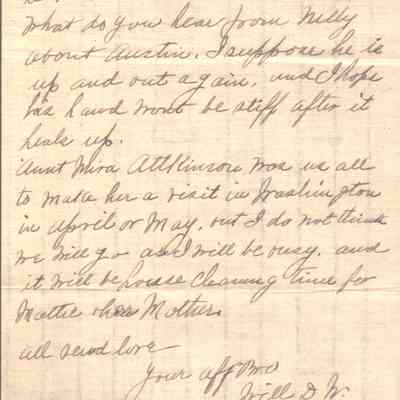 What do you hear from Nelly
about Austin. I suppose he is
up and out again, and I hope
his hand wont be stiff after it
heals up.
Aunt Mira Attkinson was us all
to make her a visit in Washington
in April or May, but I do not think
we will go as I will be busy, and
it will be house cleaning time for
Mattie Mother.
All send love
Your aff Bro
Will D W.